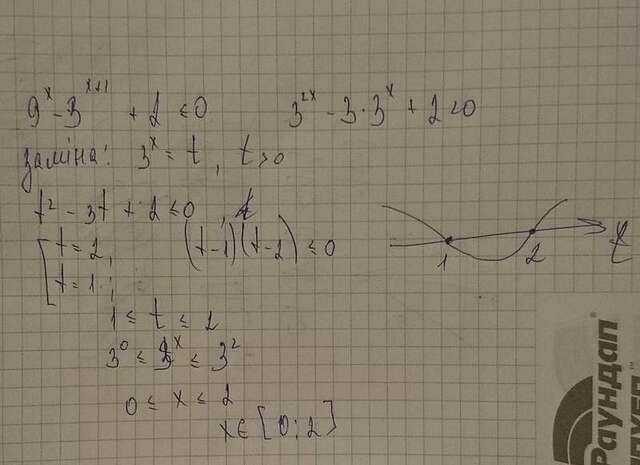 9^x - 3^{x+1} + 2 ≤ 0     3^{2x} - 3·3^x + 2 ≤ 0
заміна: 3^x = t, t > 0
t² - 3t + 2 ≤ 0,
t = 2,     (t-1)(t-2) ≤ 0
t = 1;
1     2     t
1 ≤ t ≤ 2
3^0 ≤ 3^x ≤ 3^2
0 ≤ x ≤ 2
x ∈ [0; 2]
Раундап